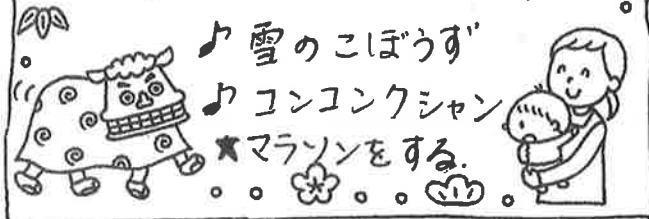 ♪ 雪のこぼうず
♪ コンコンクシャン
★マラソンをする.